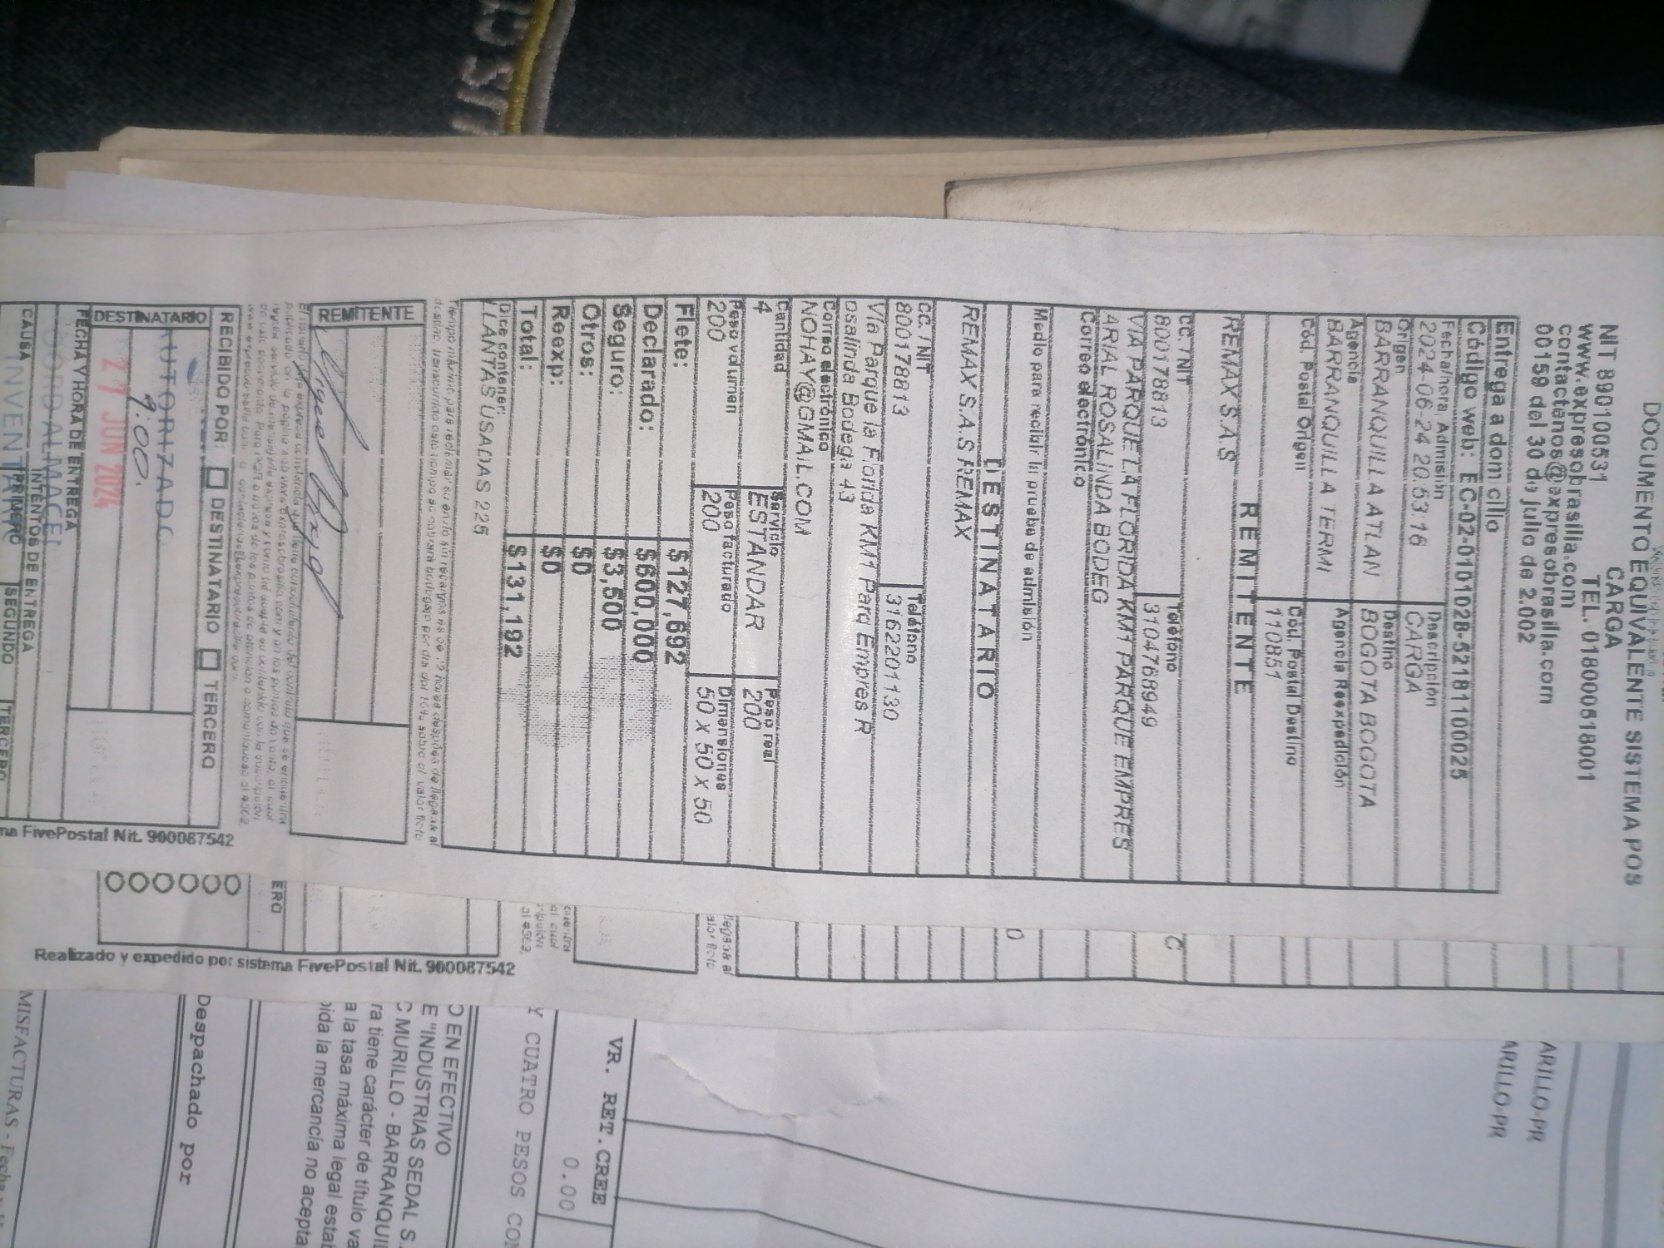 DOCUMENTO EQUIVALENTE SISTEMA POS
CARGA
NIT 890100531 TEL. 018000518001
www.expresobrasilia.com
contactenos@expresobrasilia.com
00159 del 30 de julio de 2.002
Entrega a domicilio
Código web: EC-02-0101028-52181100025
Fecha/hora Admisión Descripción
2024-06-24 20:53:16 CARGA
Origen Destino
BARRANQUILLA ATLAN BOGOTA BOGOTA
Agencia Agencia Reexpedición
BARRANQUILLA TERMI
Cód. Postal Origen Cód. Postal Destino
110851
REMITENTE
REMAX S.A.S
CC. / NIT Teléfono
800178813 3104768949
VIA PARQUE LA FLORIDA KM1 PARQUE EMPRES
ARIAL ROSALINDA BODEG
Correo electrónico
Medio para recibir la prueba de admisión
DESTINATARIO
REMAX S.A.S REMAX
CC. / NIT Teléfono
800178813 3162201130
Via Parque la Florida KM1 Parq Empres R
osalinda Bodega 43
Correo electrónico
NOHAY@GMAIL.COM
Cantidad Servicio Peso real
4 ESTANDAR 200
Peso volumen Peso facturado Dimensiones
200 200 50 x 50 x 50
Flete: $127,692
Declarado: $600,000
Seguro: $3,500
Otros: $0
Reexp: $0
Total: $131,192
Dice contener:
LLANTAS USADAS 225
REMITENTE
RECIBIDO POR: DESTINATARIO TERCERO
DESTINATARIO
AUTORIZADO
9:00.
27 JUN 2024
FECHA Y HORA DE ENTREGA
COORD ALMACEN
INTENTOS DE ENTREGA
CAUSA PRIMERO SEGUNDO TERCERO
ma FivePostal Nit. 900087542
ERO
Realizado y expedido por sistema FivePostal Nit. 900087542
ARILLO-PR
ARILLO-PR
VR. RET.CREE
0.00
Y CUATRO PESOS CON
O EN EFECTIVO
E "INDUSTRIAS SEDAL S.
C MURILLO - BARRANQUIL
ra tiene carácter de título va
a la tasa máxima legal estab
bida la mercancía no acepta
Despachado por
MISFACTURAS - Fecha y H